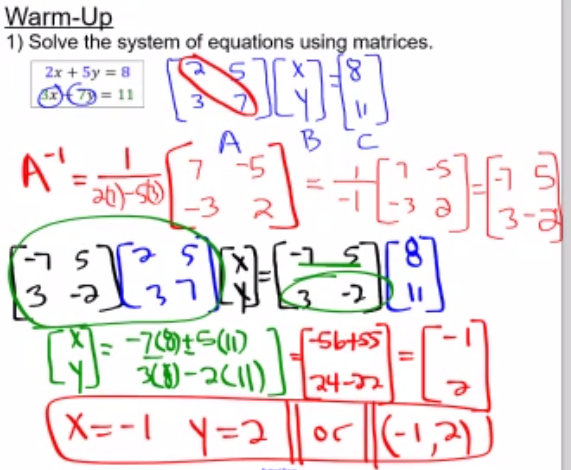 Warm-Up
1) Solve the system of equations using matrices.
2x + 5y = 8
3x + 7y = 11
[2 5; 3 7] [x; y] = [8; 11]
A B C
A⁻¹ = 1/(2(7)-5(3)) [7 -5; -3 2] = 1/-1 [7 -5; -3 2] = [-7 5; 3 -2]
[-7 5; 3 -2] [2 5; 3 7] [x; y] = [-7 5; 3 -2] [8; 11]
[x; y] = -7(8)+5(11); 3(8)-2(11)] = [-56+55; 24-22] = [-1; 2]
X=-1 Y=2 || or || (-1,2)